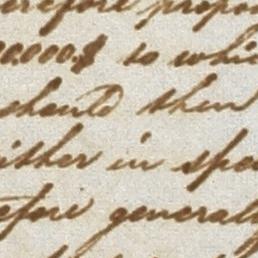 erefore propo
00.000.$ to whic
should then
either in spe
efore generally